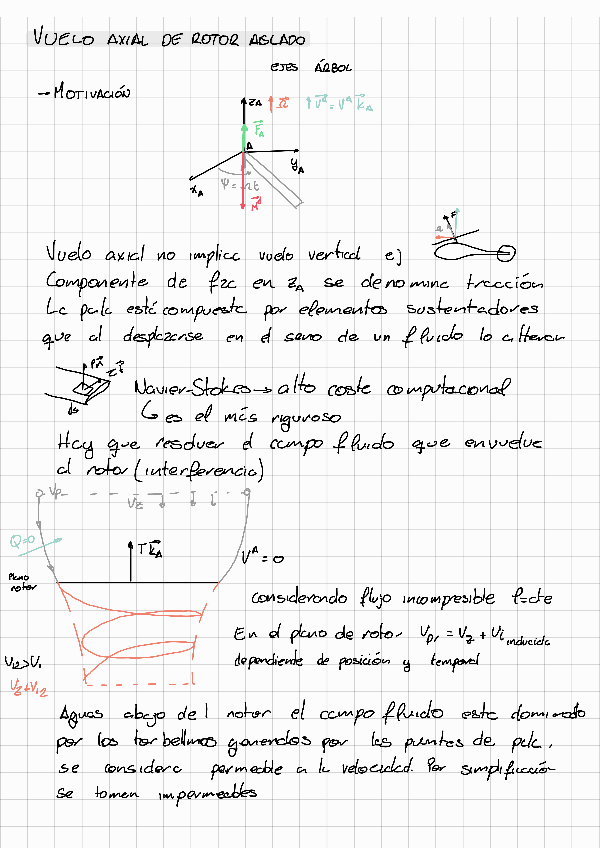 VUELO AXIAL DE ROTOR AISLADO
EJES ÁRBOL
→ MOTIVACIÓN
zA Ω V^A = V^A kA
FA
A
yA
xA
Ψ = Ωt
Vuelo axial no implica vuelo vertical ej
Componente de fza en zA se denomina tracción
La pala está compuesta por elementos sustentadores
que al desplazarse en el seno de un fluido lo alteran
Navier-Stokes → alto coste computacional
↳ es el más riguroso
Hay que resolver el campo fluido que envuelve
al rotor (interferencia)
Vz
Q=0
T kA
V^A = 0
Plano
rotor
considerando flujo incompresible ρ=cte
En el plano de rotor Vpr = Vz + Vi inducida
dependiente de posición y temporal
Vi2>Vi
Vz+Vi2
Aguas abajo del rotor el campo fluido esta dominado
por los torbellinos generados por las puntas de pala,
se considera permeable a la velocidad. Por simplificación
se toman impermeables